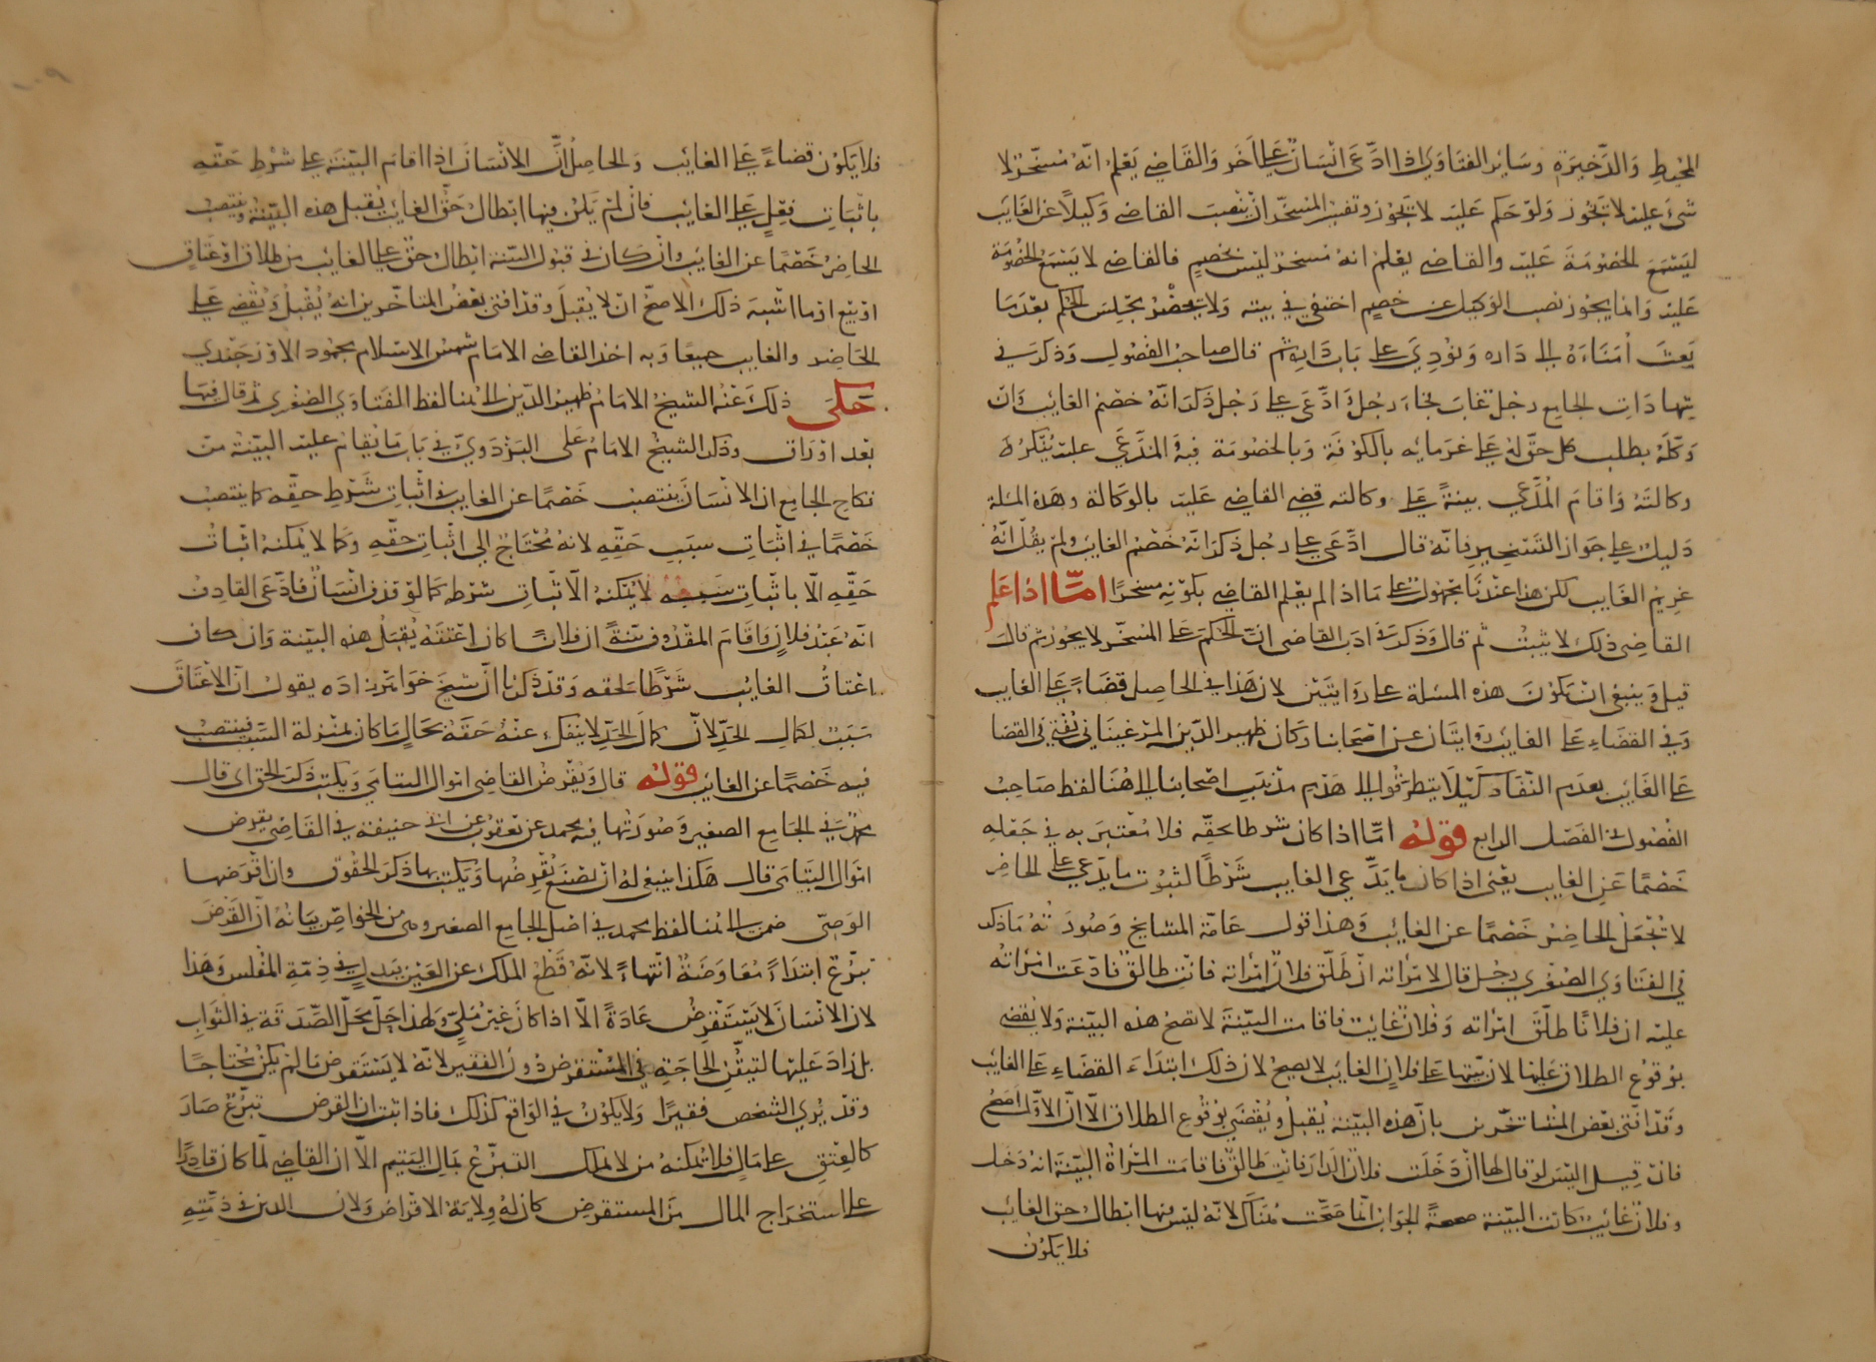 المحيط والذخيرة وسائر الفتاوى اذا ادعى انسان على اخر والقاضي يعلم انه مسخر لا
شيء عليه لا يجوز ولو حكم عليه لا يجوز وتفسير المسخر ان ينصب القاضي وكيلا عن الغايب
ليسمع الخصومة عليه والقاضي يعلم انه مسخر ليس بخصم فالقاضي لا يسمع الخصومة
عليه وانما يجوز نصب الوكيل عن خصم اختفى في بيته ولا يحضر مجلس الحكم بعد ما
بعث امناءه الى داره ونودي على باب داره ثم قال صاحب الفصول وذكر في
شهادات الجامع رجل غاب فجاء رجل وادعى على رجل ذكر انه خصم الغايب وان
وكله بطلب كل حق له على غرمايه بالكوفة وبالخصومة فيه والمدعي عليه ينكر
وكالته واقام المدعي بينة على وكالته قضى القاضي عليه بالوكالة وهذه المسئلة
دليل على جواز التسخير فانه قال ادعى على رجل ذكر انه خصم الغايب ولم يقل انه
غريم الغايب لكن هذا عندنا محمول على ما اذا لم يعلم القاضي بكونه مسخرا اما اذا علم
القاضي ذلك لا يثبت ثم قال وذكر في ادب القاضي ان الحكم على المسخر لا يجوز ثم قال
قيل وينبغي ان يكون هذه المسئلة على روايتين لان هذا في الحاصل قضاء على الغايب
وفي القضاء على الغايب روايتان عن اصحابنا وكان ظهير الدين المرغيناني يفتي في القضا
على الغايب بعدم النفاد كيلا يتطرقوا الى هدم مذهب اصحابنا الى هنا لفظ صاحب
الفصول في الفصل الرابع قوله اما اذا كان شرطا لحقه فلا معتبر به في جعله
خصما عن الغايب يعني اذا كان ما يدعي على الغايب شرطا لثبوت ما يدعي على الحاضر
لا يجعل الحاضر خصما عن الغايب وهذا قول عامة المشايخ وصورته ما ذكر
في الفتاوى الصغرى رجل قال لامراته ان طلق فلان امراته فانت طالق فادعت امراته
عليه ان فلانا طلق امراته وفلان غايب فاقامت البينة لا تصح هذه البينة ولا يقضى
بوقوع الطلاق عليها لان بينتها على فلان الغايب لا يصح لان ذلك ابتداء القضاء على الغايب
وقد افتى بعض المتاخرين بان هذه البينة يقبل ويقضى بوقوع الطلاق الا ان الاول اصح
فان قيل اليس لو قال لها ان دخلت فلان الدار فانت طالق فاقامت المراة البينة انه دخل
وفلان غايب كانت البينة صحيحة الجواب انما صحت هناك لانه ليس فيها ابطال حق الغايب
فلا يكون
فلا يكون قضاء على الغايب والحاصل ان الانسان اذا اقام البينة على شرط حقه
باثبات فعل على الغايب فان لم يكن فيها ابطال حق الغايب يقبل هذه البينة وينتصب
الحاضر خصما عن الغايب وان كان في قبول البينة ابطال حق على الغايب من طلاق او عتاق
او بيع او ما اشبه ذلك الاصح ان لا يقبل وقد افتى بعض المتاخرين انه يقبل ويقضي على
الحاضر والغايب جميعا وبه اخذ القاضي الامام شمس الاسلام محمود الاوزجندي
حكى ذلك عنه الشيخ الامام ظهير الدين الى هنا لفظ الفتاوى الصغرى ثم قال فيها
بعد اوراق وذكر الشيخ الامام على البزدوي في باب ما يقام عليه البينة من
نكاح الجامع ان الانسان ينتصب خصما عن الغايب في اثبات شرط حقه كما ينتصب
خصما في اثبات سبب حقه لانه محتاج الى اثبات حقه وكما لا يمكنه اثبات
حقه الا باثبات سببه لا يمكنه الا باثبات شرطه كما لو قذف انسان فادعى القاذف
انه عبد فلان واقام المقذوف بينة ان فلانا كان اعتقه يقبل هذه البينة وان كان
اعتاق الغايب شرطا لحقه وقد ذكرنا ان شيخ خواهر زاده يقول ان الاعتاق
سبب لكمال الحد لان كمال الحد لا ينفك عنه حقه بحال ما كان بمنزلة السبب فينتصب
فيه خصما عن الغايب قوله قال ويقرض القاضي اموال اليتامى ويكتب ذكر الحق اى قال
محمد في الجامع الصغير وصورتها فيه محمد عن يعقوب عن ابي حنيفة في القاضي يقرض
اموال اليتامى قال هكذا ينبغي له ان يصنع يقرضها ويكتب بها ذكر الحقوق وان اقرضها
الوصي ضمن الى هنا لفظ محمد في اصل الجامع الصغير وهى من الخواص بيانه ان القرض
تبرع ابتداء معاوضة انتهاء لانه قطع الملك عن العين ببدل في ذمة المفلس وهذا
لان الانسان لا يستقرض عادة الا اذا كان غير ملي ولهذا حل محل الصدقة في الثواب
بل زاد عليها لتيقن الحاجة في المستقرض دون الفقير لانه لا يستقرض ما لم يكن محتاجا
وقد يرى الشخص فقيرا ولا يكون في الواقع كذلك فاذا ثبت ان القرض تبرع صار
كالعتق على مال فلا يمكنه من لا يملك التبرع بمال اليتيم الا ان القاضي لما كان قادرا
على استخراج المال من المستقرض كان له ولاية الاقراض ولان الدين في ذمته